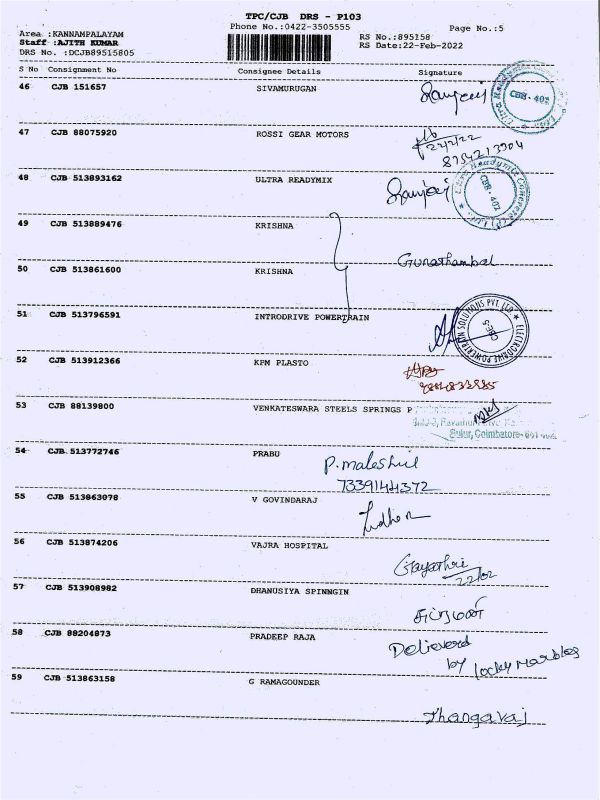 TPC/CJB DRS - P103
Phone No.:0422-3505555
Page No.:5
Area :KANNAMPALAYAM
Staff :AJITH KUMAR
DRS No. :DCJB89515805
RS No.:895158
RS Date:22-Feb-2022
S No Consignment No Consignee Details Signature
46 CJB 151657 SIVAMURUGAN
CBB-402
47 CJB 88075920 ROSSI GEAR MOTORS
22/2/22
8754213904
48 CJB 513893162 ULTRA READYMIX
CBB-402
49 CJB 513889476 KRISHNA
Gunathambal
50 CJB 513861600 KRISHNA
51 CJB 513796591 INTRODRIVE POWERTRAIN
52 CJB 513912366 KPM PLASTO
53 CJB 88139800 VENKATESWARA STEELS SPRINGS P
Sulur, Coimbatore-
54 CJB 513772746 PRABU
7339144372
55 CJB 513863078 V GOVINDARAJ
56 CJB 513874206 VAJRA HOSPITAL
Gayathri
22/02
57 CJB 513908982 DHANUSIYA SPINNGIN
58 CJB 88204873 PRADEEP RAJA
Delievered
by locky Marbles
59 CJB 513863158 G RAMAGOUNDER
Thangavaj